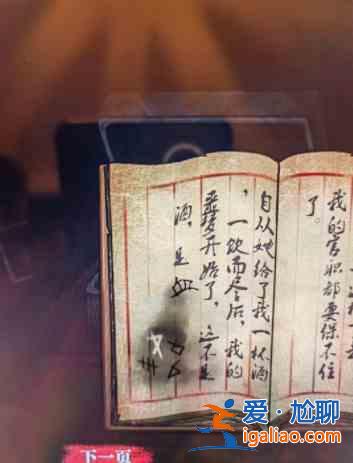 我的官职都要保不住
了。
自从她给了我一杯酒
，一饮而尽后，我的
噩梦开始了，这不是
酒，是血
下一页
爱·尴聊
igaliao.com